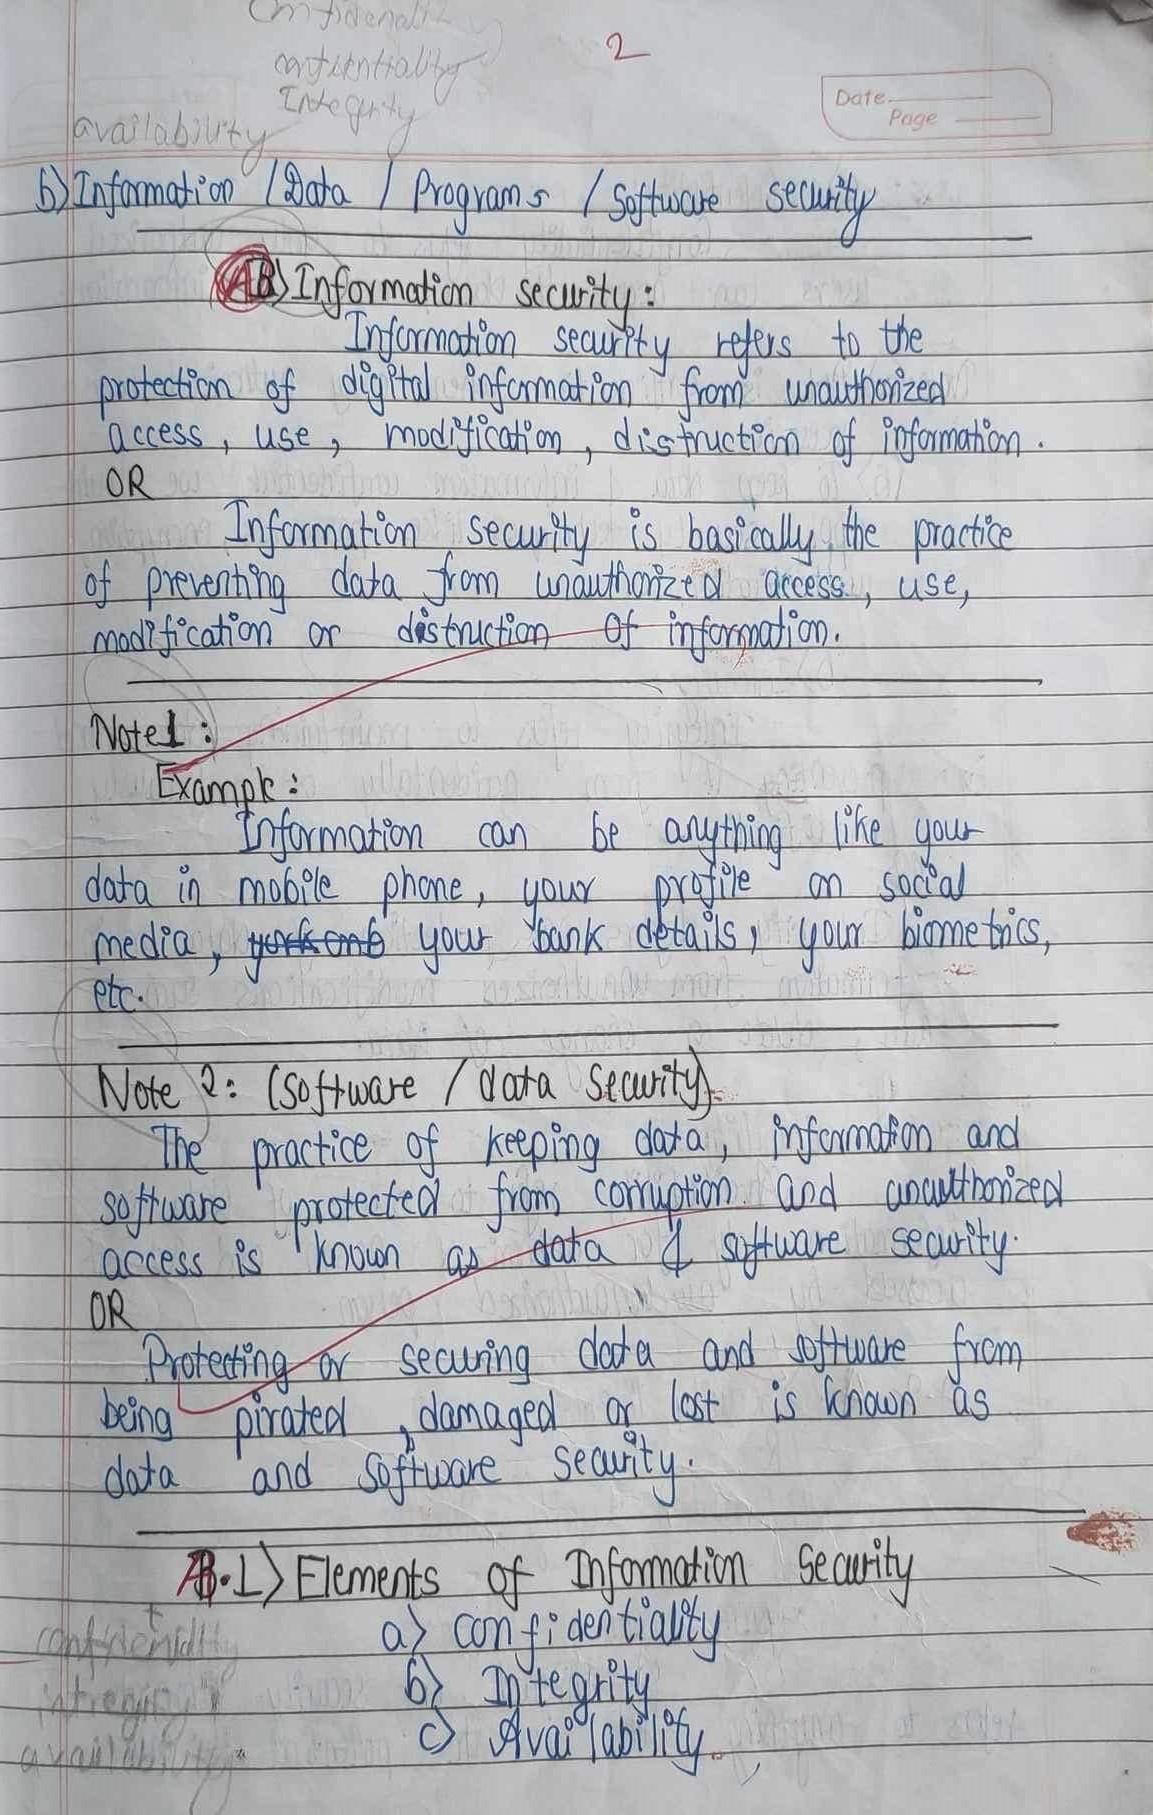 confidentiality
2
Integrity
availability
Date
Page
b) Information / Data / Programs / Software security
B) Information security :
Information security refers to the
protection of digital information from unauthorized
access, use, modification, distruction of information.
OR
Information security is basically the practice
of preventing data from unauthorized access, use,
modification or distruction of information.
Note 1 :
Example :
Information can be anything like your
data in mobile phone, your profile on social
media, your bank details, your biometrics,
etc.
Note 2: (Software / data Security).
The practice of keeping data, information and
software protected from corruption and unauthorized
access is known as data & software security.
OR
Protecting or securing data and software from
being pirated, damaged or lost is known as
data and software security.
B.1) Elements of Information Security
a) confidentiality
b) Integrity
c) Availability.
availability